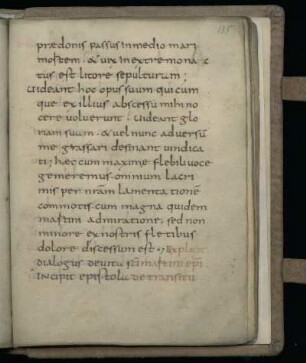 135
prædonis passus inmedio mari
mortem. & vix inextremo na c
tus est litore sepulturum;
Uideant hoc opus suum qui cum
que ex illius abscessu mihi no
cere voluerunt; Uideant glo
riam suam. & vel nunc adversū
me grassari desinant vindica
ti; hæc cum maxime flebili voce
gemeremus. omnium lacri
mis per nram lamentationē
commotis. cum magna quidem
martini admiratione. sed non
minore ex nostris fletibus
dolore discessum est. Explicit
dialogus de vita sci martini epi.
Incipit epistola de transitu